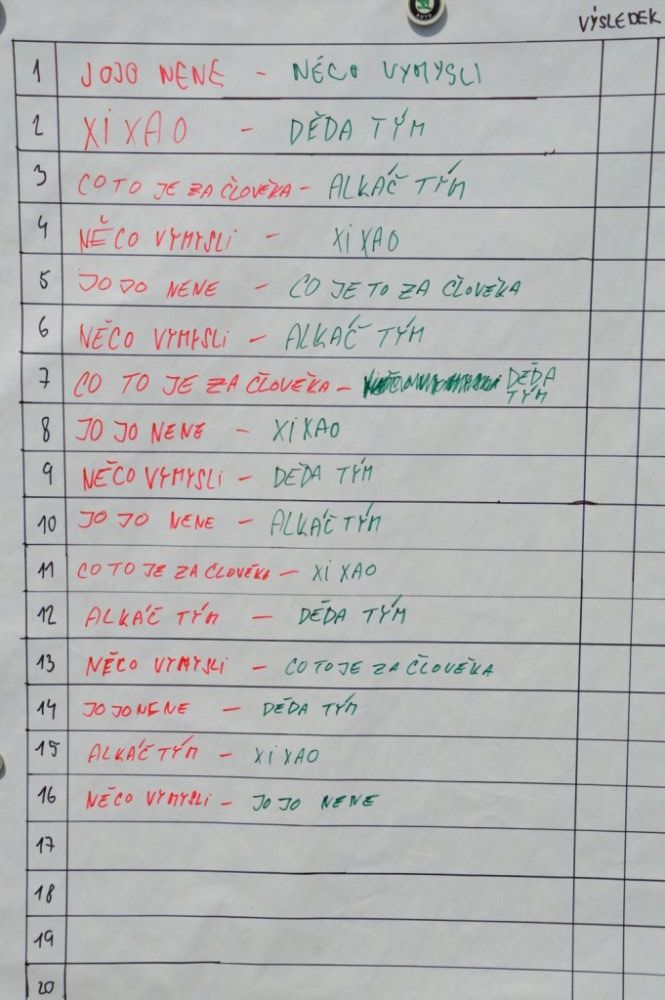 VÝSLEDEK
1 JOJO NENE - NĚCO VYMYSLI
2 XIXAO - DĚDA TÝM
3 CO TO JE ZA ČLOVĚKA - ALKÁČ TÝM
4 NĚCO VYMYSLI - XIXAO
5 JO JO NENE - CO JE TO ZA ČLOVĚKA
6 NĚCO VYMYSLI - ALKÁČ TÝM
7 CO TO JE ZA ČLOVĚKA - DĚDA
TÝM
8 JO JO NENE - XIXAO
9 NĚCO VYMYSLI - DĚDA TÝM
10 JO JO NENE - ALKÁČ TÝM
11 CO TO JE ZA ČLOVĚKA - XIXAO
12 ALKÁČ TÝM - DĚDA TÝM
13 NĚCO VYMYSLI - CO TO JE ZA ČLOVĚKA
14 JO JO NENE - DĚDA TÝM
15 ALKÁČ TÝM - XIXAO
16 NĚCO VYMYSLI - JO JO NENE
17
18
19
20